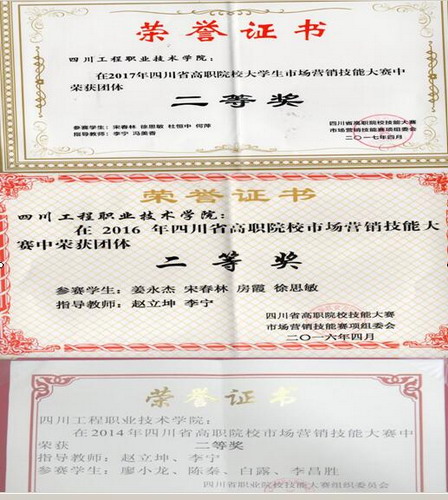 荣誉证书
四川工程职业技术学院：
在2017年四川省高职院校大学生市场营销技能大赛中
荣获团体
二等奖
参赛学生：宋春林 徐思敏 杜恒中 何萍
指导教师：李宁 冯美香
四川省高职院校技能大赛
市场营销技能赛项组委会
二〇一七年四月
荣誉证书
四川工程职业技术学院：
在 2016 年四川省高职院校市场营销技能大
赛中荣获团体
二等奖
参赛学生：姜永杰 宋春林 房霞 徐思敏
指导教师：赵立坤 李宁
四川省高职院校技能大赛
市场营销技能赛项组委会
二〇一六年四月
荣誉证书
四川工程职业技术学院：
在2014年四川省高职院校市场营销技能大赛中
荣获 二等奖
指导教师：赵立坤、李宁
参赛学生：廖小龙、陈秦、白露、李昌胜
四川省职业院校技能大赛组织委员会